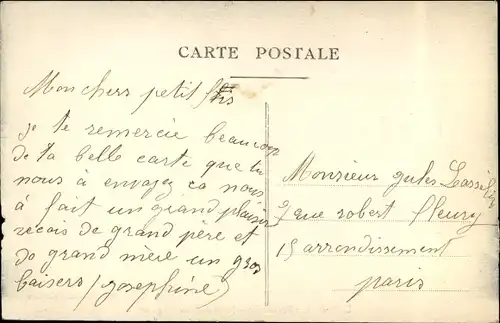 CARTE POSTALE
Mon chers petit fils
je te remercie beaucoup
de ta belle carte que tu
nous à envoyez ca nous
à fait un grand plaisir
recois de grand père et
de grand mère un gros
baisers / josephine
Monsieur jules
7 rue robert fleury
15 arrondissement
paris